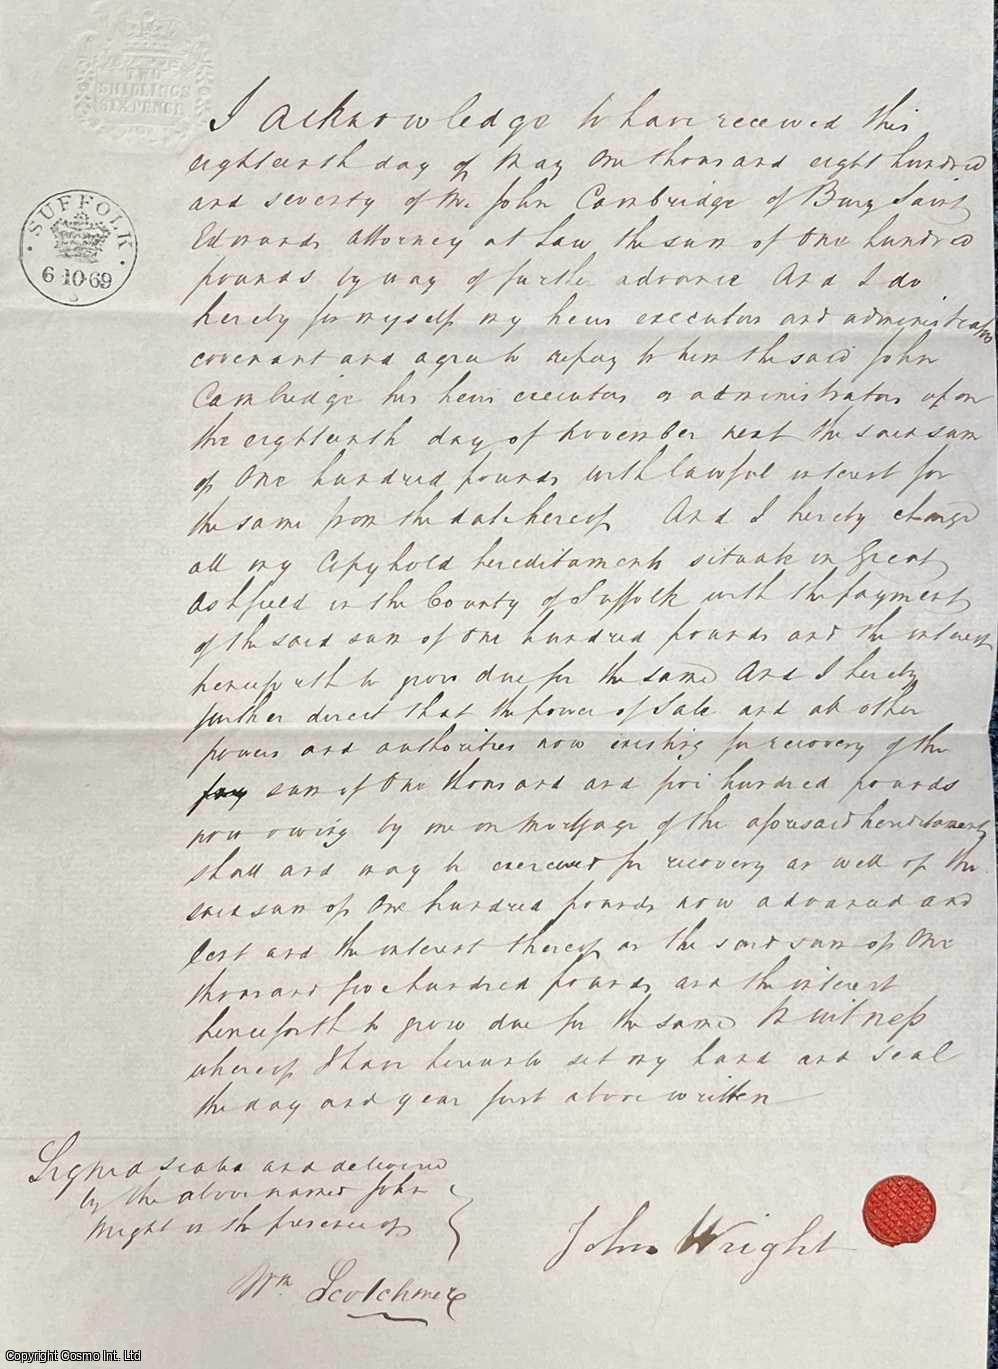 TWO
SHILLINGS
SIXPENCE
SUFFOLK
6·10·69
I Acknowledge to have received this
eighteenth day of May One thousand eight hundred
and seventy of Mr John Cambridge of Bury Saint
Edmunds Attorney at Law the sum of One hundred
pounds by way of further advance And I do
hereby for myself my heirs executors and administrators
covenant and agree to repay to him the said John
Cambridge his heirs executors or administrators upon
the eighteenth day of November next the said sum
of One hundred pounds with lawful interest for
the same from the date hereof And I hereby charge
all my Copyhold hereditaments situate in Great
Ashfield in the County of Suffolk with the payment
of the said sum of One hundred pounds and the interest
henceforth to grow due for the same And I hereby
further direct that the power of Sale and all other
powers and authorities now existing for recovery of the
sum of One thousand and five hundred pounds
now owing by me on Mortgage of the aforesaid hereditaments
shall and may be exercised for recovery as well of the
said sum of One hundred pounds now advanced and
lent and the interest thereof as the said sum of One
thousand five hundred pounds and the interest
henceforth to grow due for the same In witness
whereof I have hereunto set my hand and seal
the day and year first above written
Signed sealed and delivered
by the above named John
Wright in the presence of
John Wright
Wm. Scotchmer
Copyright Cosmo Int. Ltd